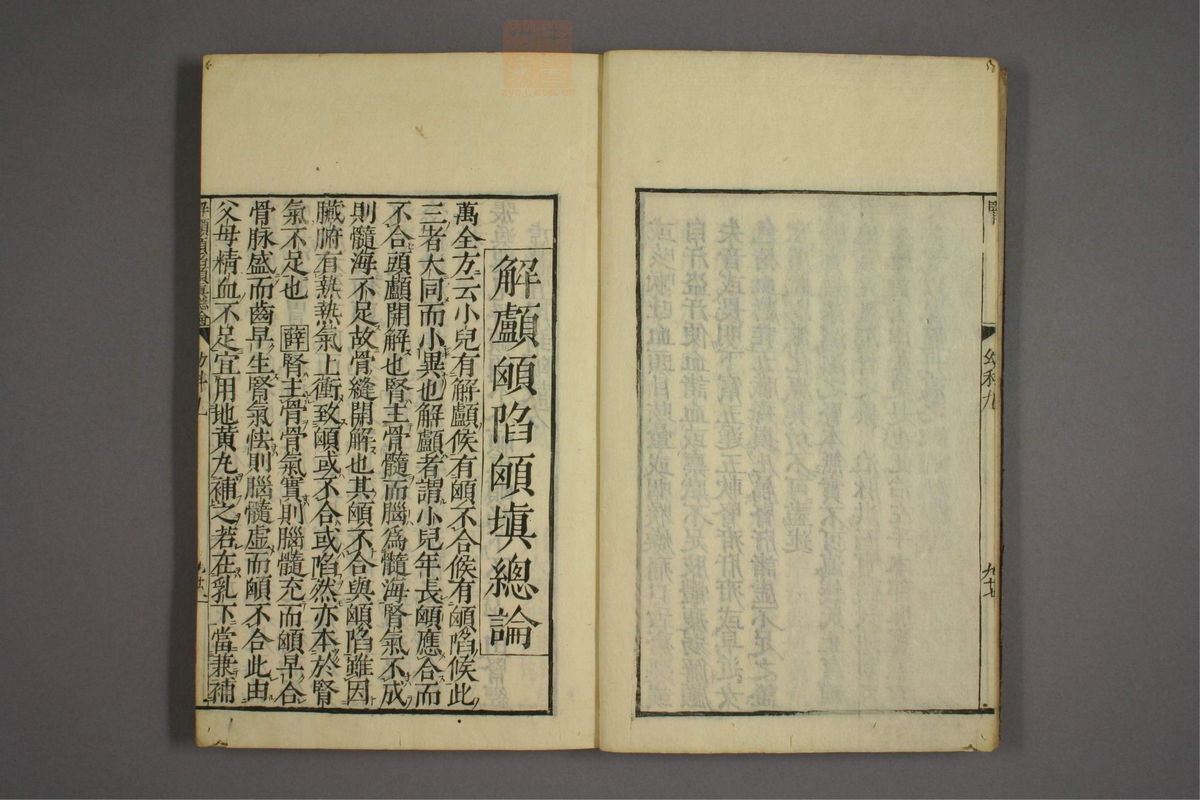 幼科九
解顱𩔞陷𩔞塡總論
萬全方云小兒有解顱候有𩔞不合候有𩔞陷候此
三者大同而小異也解顱者謂小兒年長𩔞應合而
不合頭顱開解也腎主骨髓而腦爲髓海腎氣不成
則髓海不足故骨縫開解也其𩔞不合與𩔞陷雖因
臟腑有熱熱氣上衝致𩔞或不合或陷然亦本於腎
氣不足也 薛腎主骨骨氣實則腦髓充而𩔞早合
骨脉盛而齒早生腎氣怯則腦髓虛而𩔞不合此由
父母精血不足宜用地黄丸補之若在乳下當兼補